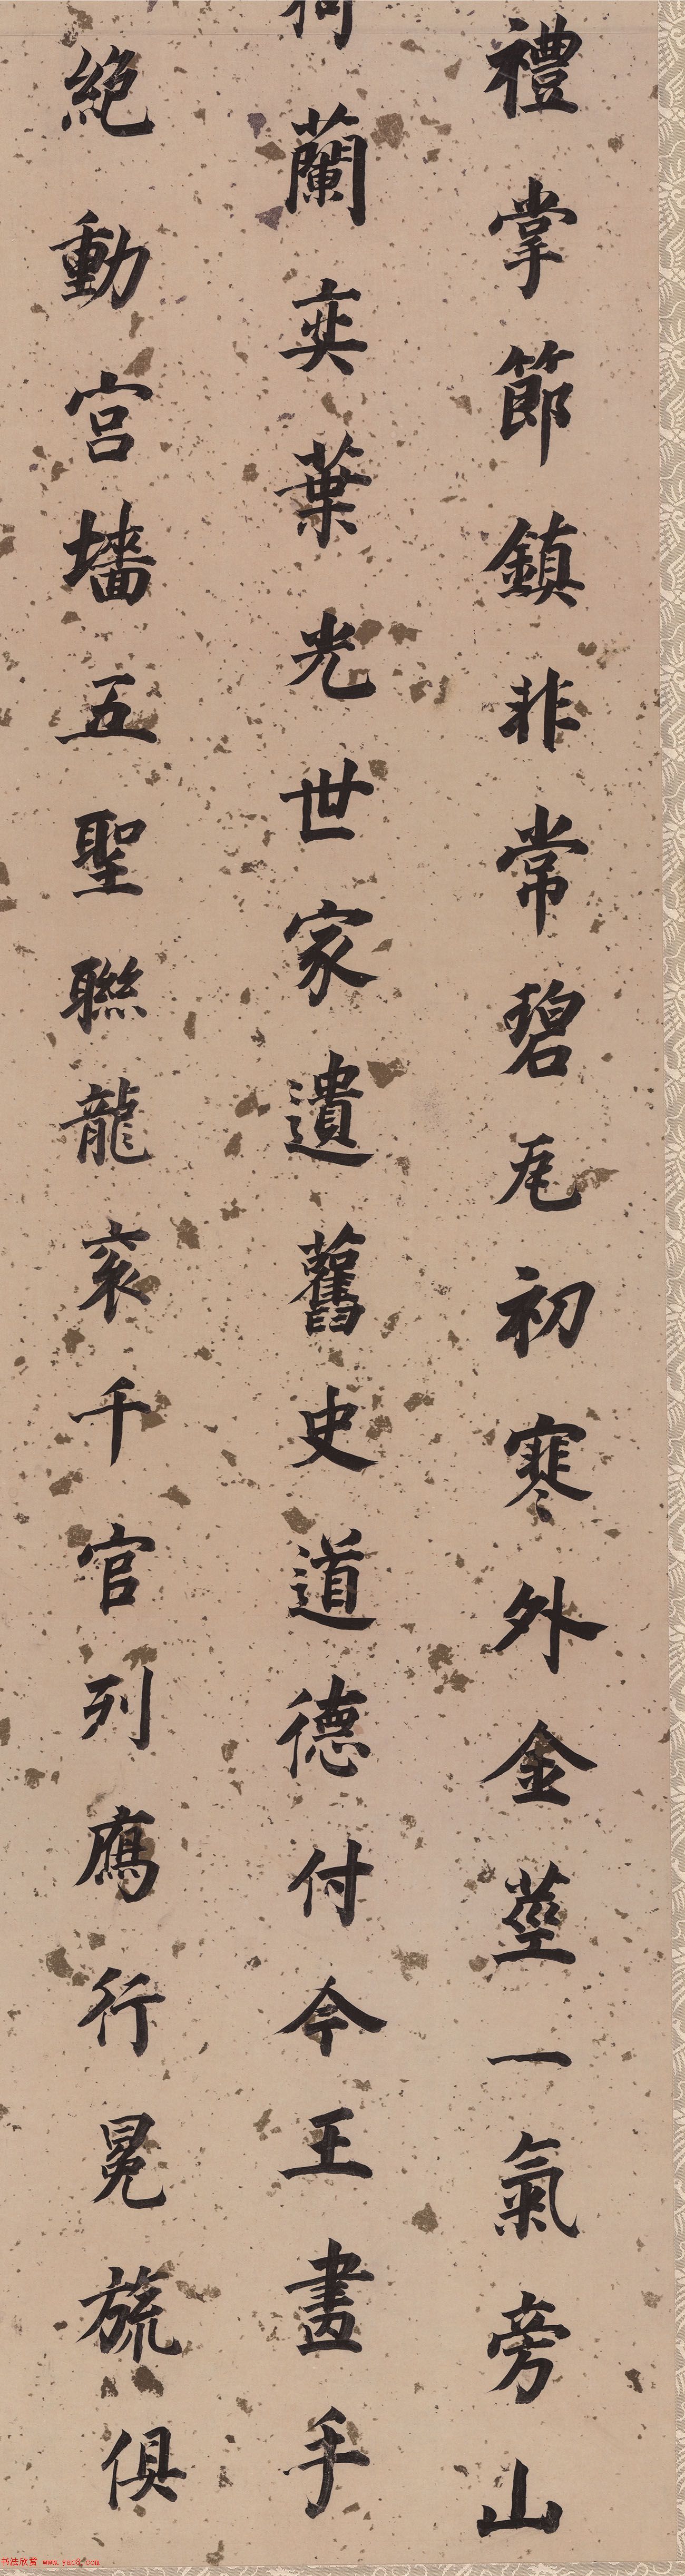 禮掌節鎮非常碧瓦初寒外金莖一氣旁山
蘭奕葉光世家遺舊史道德付今王畫手
絕動宮墻五聖聯龍袞千官列鴈行冕旒俱
书法欣赏 www.yac8.com